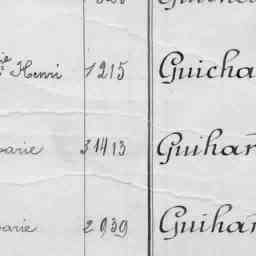 Henri 1215 Guicha
arie 31413 Guihar
arie 2939 Guihar